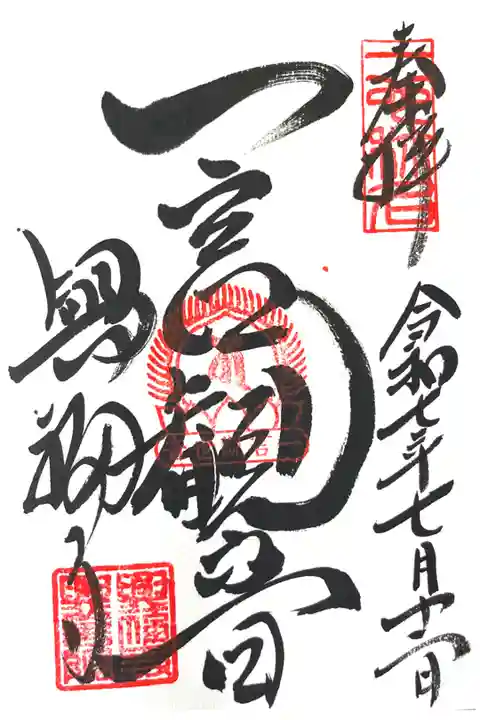 奉拝
令和七年七月十日
一言観音
興福寺